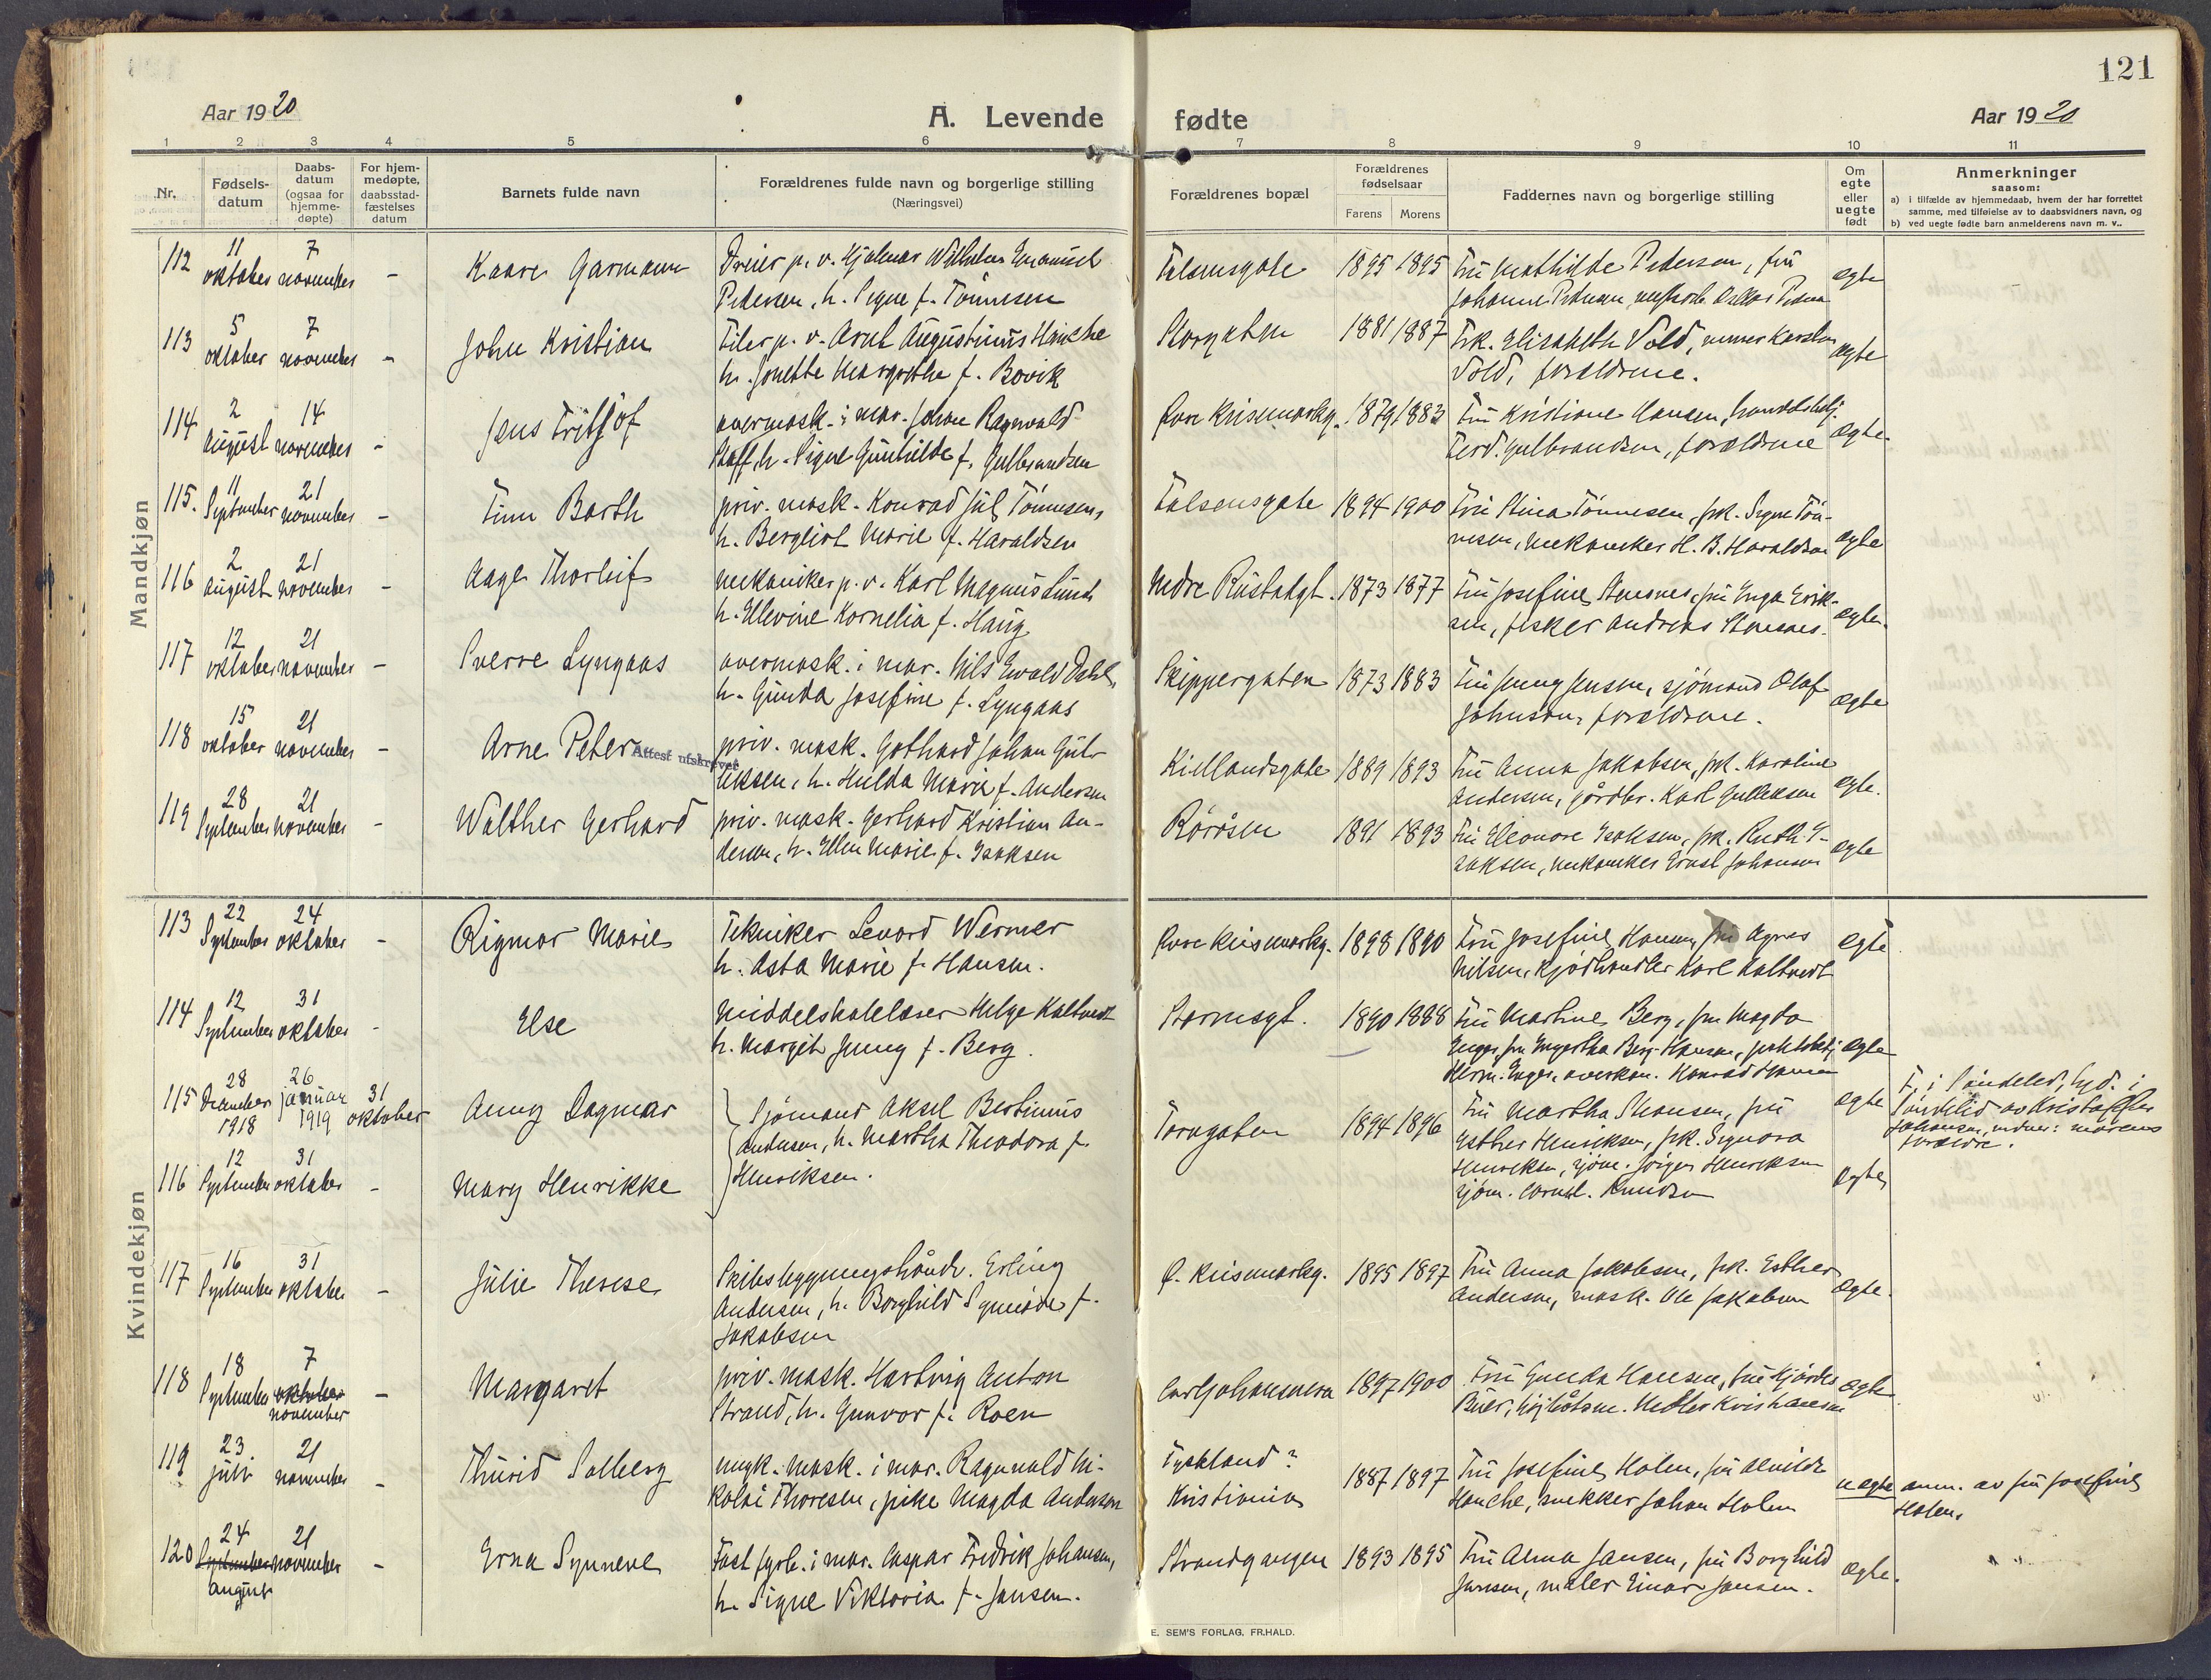 121
Aar 1920
A. Levende fødte
Aar 1920
1 2 3 4 5 6 7 8 9 10 11
Nr.
Fødsels-
datum
Daabs-
datum
(ogsaa for
hjemme-
døpte)
For hjem-
medøpte,
daabsstad-
fæstelses
datum
Barnets fulde navn
Forældrenes fulde navn og borgerlige stilling
(Næringsvei)
Forældrenes bopæl
Forældrenes
fødselsaar
Farens Morens
Faddernes navn og borgerlige stilling
Om
egte
eller
uegte
født
Anmerkninger
saasom:
a) i tilfælde av hjemmedaab, hvem der har forrettet
samme, med tilføielse av to daabsvidners navn, og
b) ved uegte fødte barn anmelderens navn m. v..
Mandkjøn
112 11 oktober 7 november - Kaare Garmann
Dreier p. v. Hjalmar Wilhelm Emanuel
Pedersen, h. Signe f. Tönnesen
Falsensgate 1895 1895
Fru Mathilde Pedersen, fru
Johanne Pedersen
egte
113 5 oktober 7 november - John Kristian
Filer p. v. Arnt Augustinus Hauche
h. Jonette Margrethe f. Bovik
Storgaten 1881 1887
Frk. Elisabeth Vold, Karsten
Vold, forældrene.
egte
114 2 august 14 november - Jens Fritjof
overmask. i mar. Johan Ragnvald
Staff, h. Signe Gunhilde f. Gulbrandsen
1879 1883
Fru Kristiane Hansen, handelsbetj.
Ferd. Gulbrandsen, forældrene
egte
115. 11 September 21 november - Finn Barth
priv. mask. Konrad Jul. Tönnesen,
h. Bergliot Marie f. Haraldsen
Falsensgate 1894 1900
Fru Stina Tönnesen, frk. Signe Tön-
nesen, mekaniker H. B. Haraldsen
egte
116 2 august 21 november - Aage Thorleif
mekaniker p. v. Karl Magnus Lund
h. Ellevine Kornelia f. Haug
Nedre Rustadgt. 1873 1877
Fru Josefine Stensnes, fru Inga Erik-
sen, fisker Andreas Stensnes.
egte.
117 12 oktober 21 november - Sverre Lyngaas
overmask. i mar. Nils Ewald Dahl,
h. Gunda Josefine f. Lyngaas
Skippergaten 1873 1883
Fru Jenny Jensen, sjömand Olaf
Johnson, forældrene.
egte
118 15 oktober 21 november - Arne Peter
Attest utskrevet
priv. mask. Gothard Johan Gul-
leksen, h. Hulda Marie f. Andersen
Kiellandsgate 1889 1893
Fru Anna Jakobsen, frk. Karoline
Andersen, gårdbr. Karl Gulleksen
egte.
119 28 September 21 november - Walther Gerhard
priv. mask. Gerhard Kristian An-
dersen, h. Ellen Marie f. Isaksen
Rörösen 1891 1893
Fru Eleonore Isaksen, frk. Ruth I-
saksen, mekaniker Ernst Johansen
egte
Kvindekjøn
113 22 September 24 oktober - Rigmor Marie
Tekniker Lenord Werner
h. Asta Marie f. Hansen.
1898 1890
Fru Josefine Hansen, fru Agnes
Nilsen, kjödhandler Karl Kaltvedt
egte
114 12 September 31 oktober - Else
Middelskolelærer Helge Kaltvedt
h. Margit Jenny f. Berg.
Stormsgt. 1890 1888
Fru Martine Berg, fru Magda
Enger, fru Berg-Hansen,
Herm. Enger, Konrad Hansen
egte
115 28 December 1918 26 januar 1919 31 oktober Anny Dagmar
Sjömand Aksel Bertinius
Andersen, h. Martha Theodora f.
Henriksen.
Torvgaten 1894 1896
Fru Martha Thousen, fru
Esther Henriksen, frk. Signora
Henriksen, sjöm. Jörgen Henriksen
sjöm. Knudsen
egte
F. i Söndeled, hjd. i
Söndeled av Kristoffer
Johansen, vidner: morens
forældre.
116 12 September 31 oktober - Mary Henrikke
egte
117 16 September 31 oktober - Julie Therese
Skibsbygningshåndv. Erling
Andersen, h. Borghild Synnöve f.
Jakobsen
1895 1897
Fru Anna Jakobsen, frk. Esther
Andersen, mask. Ole Jakobsen
egte.
118 18 September 7 oktober november - Margaret
priv. mask. Hartvig Anton
Strand, h. Gunvor f. Roen
1897 1900
Fru Gunda Hansen, fru Hjördis
Kristiansen
egte
119 23 juli 21 november - Thurid Solberg
undk. mask. i mar. Ragnvald Ni-
kolai Thoresen, pike Magda Andersen
Tyskland?
Kristiania
1887 1897
Fru Josefine Holen, fru Alvilde
Hauche, snekker Johan Holen
uegte
anm. av fru Josefine
Holen.
120 24 September august 21 november - Erna Synneve
Fast fyrb. i mar. Caspar Fredrik Johansen,
h. Signe Viktoria f. Jansen.
Strandgangen 1893 1895
Fru Alma Jansen, fru Borghild
Jansen, maler Einar Jansen.
egte.
E. SEM'S FORLAG, FR.HALD.